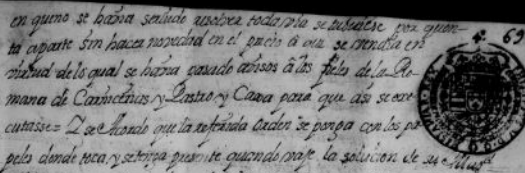 en que no se havia servido resolver todavia se tubiese por quen
ta aparte sin hacer novedad en el precio â que se vendia en
virtud de lo qual se havia pasado avisos â los fieles de la Ro
mana de Carnicerias y Rastro y Caxa para que asi se exe
cutasse= Y se Acordo que la referida Orden se ponga con los pa
peles donde toca, y se tenga presente quando vaje la resolucion de su Mag.d
4. 69